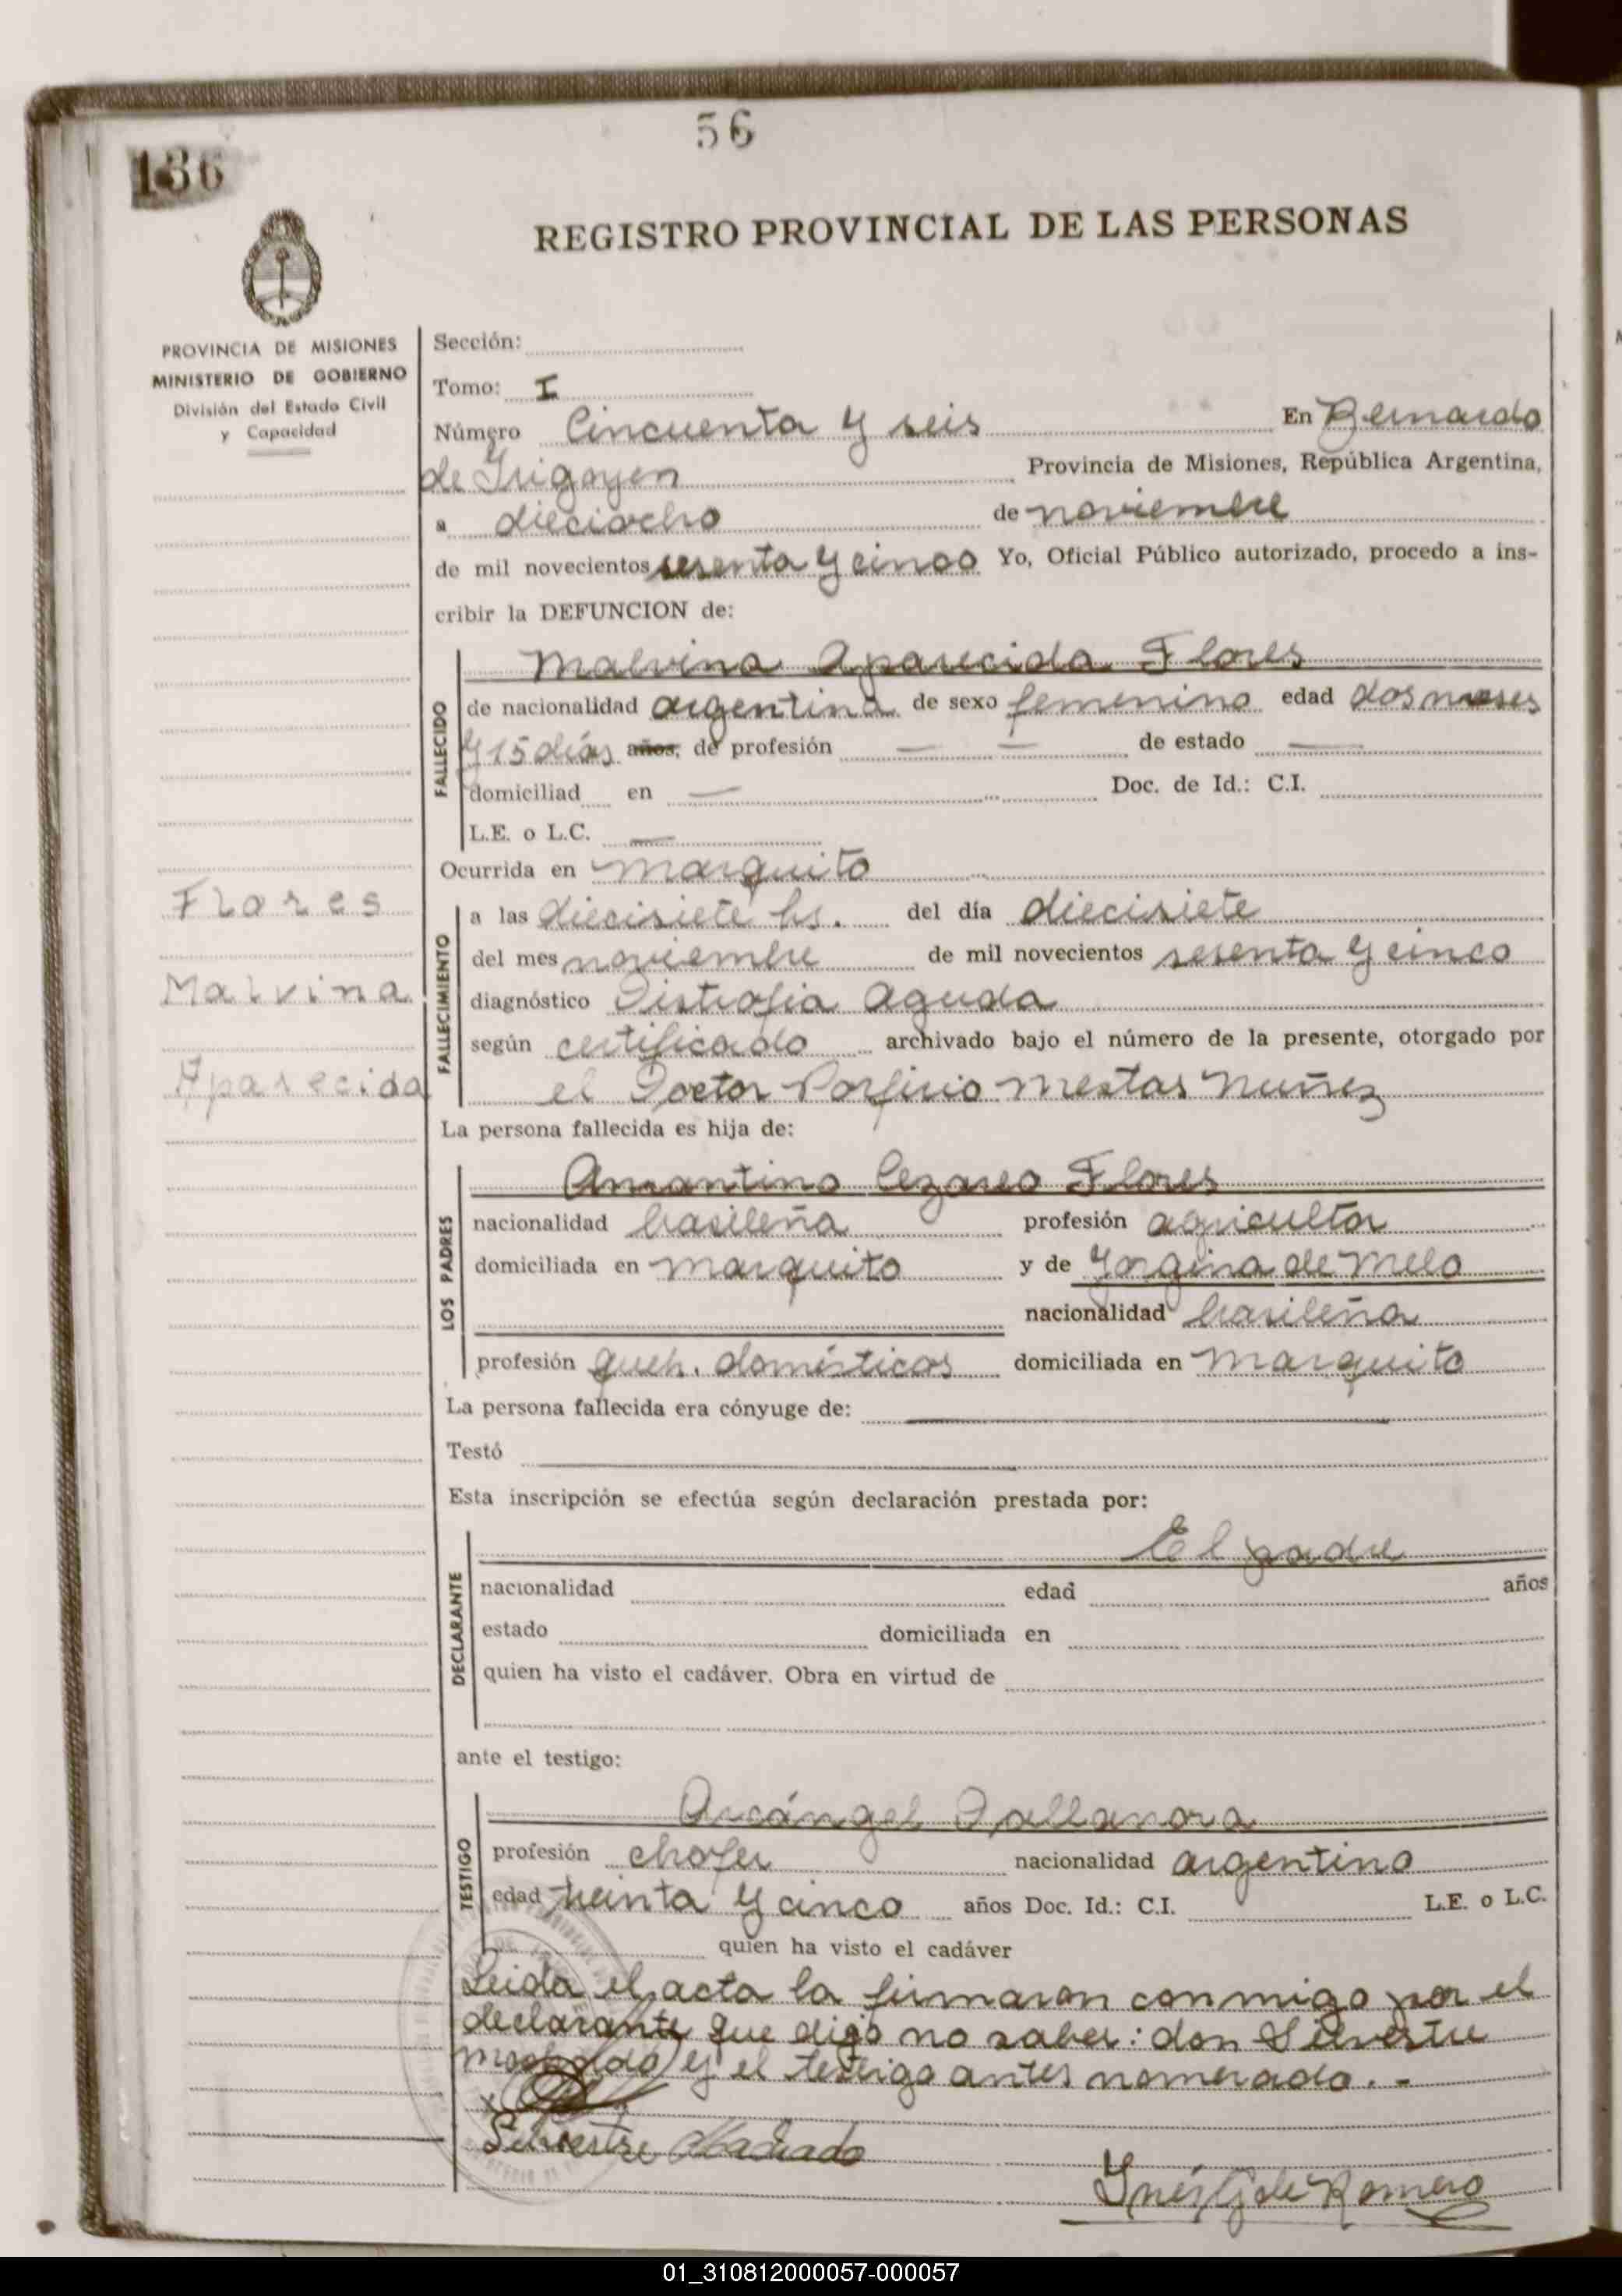 56
136
REGISTRO PROVINCIAL DE LAS PERSONAS
PROVINCIA DE MISIONES
MINISTERIO DE GOBIERNO
División del Estado Civil
y Capacidad
Sección:
Tomo: I
Número Cincuenta y seis En Bernardo
de Irigoyen Provincia de Misiones, República Argentina,
a dieciocho de noviembre
de mil novecientos sesenta y cinco Yo, Oficial Público autorizado, procedo a ins-
cribir la DEFUNCION de:
FALLECIDO
Malvina Aparecida Flores
de nacionalidad argentina de sexo femenino edad dos meses
y 15 días años, de profesión — — de estado —
domiciliad en — Doc. de Id.: C.I.
L.E. o L.C. —
Ocurrida en Marquito
Flores
Malvina
Aparecida
FALLECIMIENTO
a las diecisiete hs. del día diecisiete
del mes noviembre de mil novecientos sesenta y cinco
diagnóstico Distrofia Aguda
según certificado archivado bajo el número de la presente, otorgado por
el Doctor Porfirio Mestas Nuñez
La persona fallecida es hija de:
LOS PADRES
Amantino Cezareo Flores
nacionalidad brasileña profesión agricultor
domiciliada en Marquito y de Jorgina de Mello
nacionalidad brasileña
profesión queh. domésticos domiciliada en Marquito
La persona fallecida era cónyuge de:
Testó
Esta inscripción se efectúa según declaración prestada por:
DECLARANTE
El padre
nacionalidad edad años
estado domiciliada en
quien ha visto el cadáver. Obra en virtud de
ante el testigo:
TESTIGO
Arcángel Dallanora
profesión chofer nacionalidad argentino
edad treinta y cinco años Doc. Id.: C.I. L.E. o L.C.
quien ha visto el cadáver
Leida el acta la firmaron conmigo por el
declarante que dijo no saber: don Silvestre
Machado y el testigo antes nomerado. -
Silvestre Machado
Inés G de Romero
01_310812000057-000057